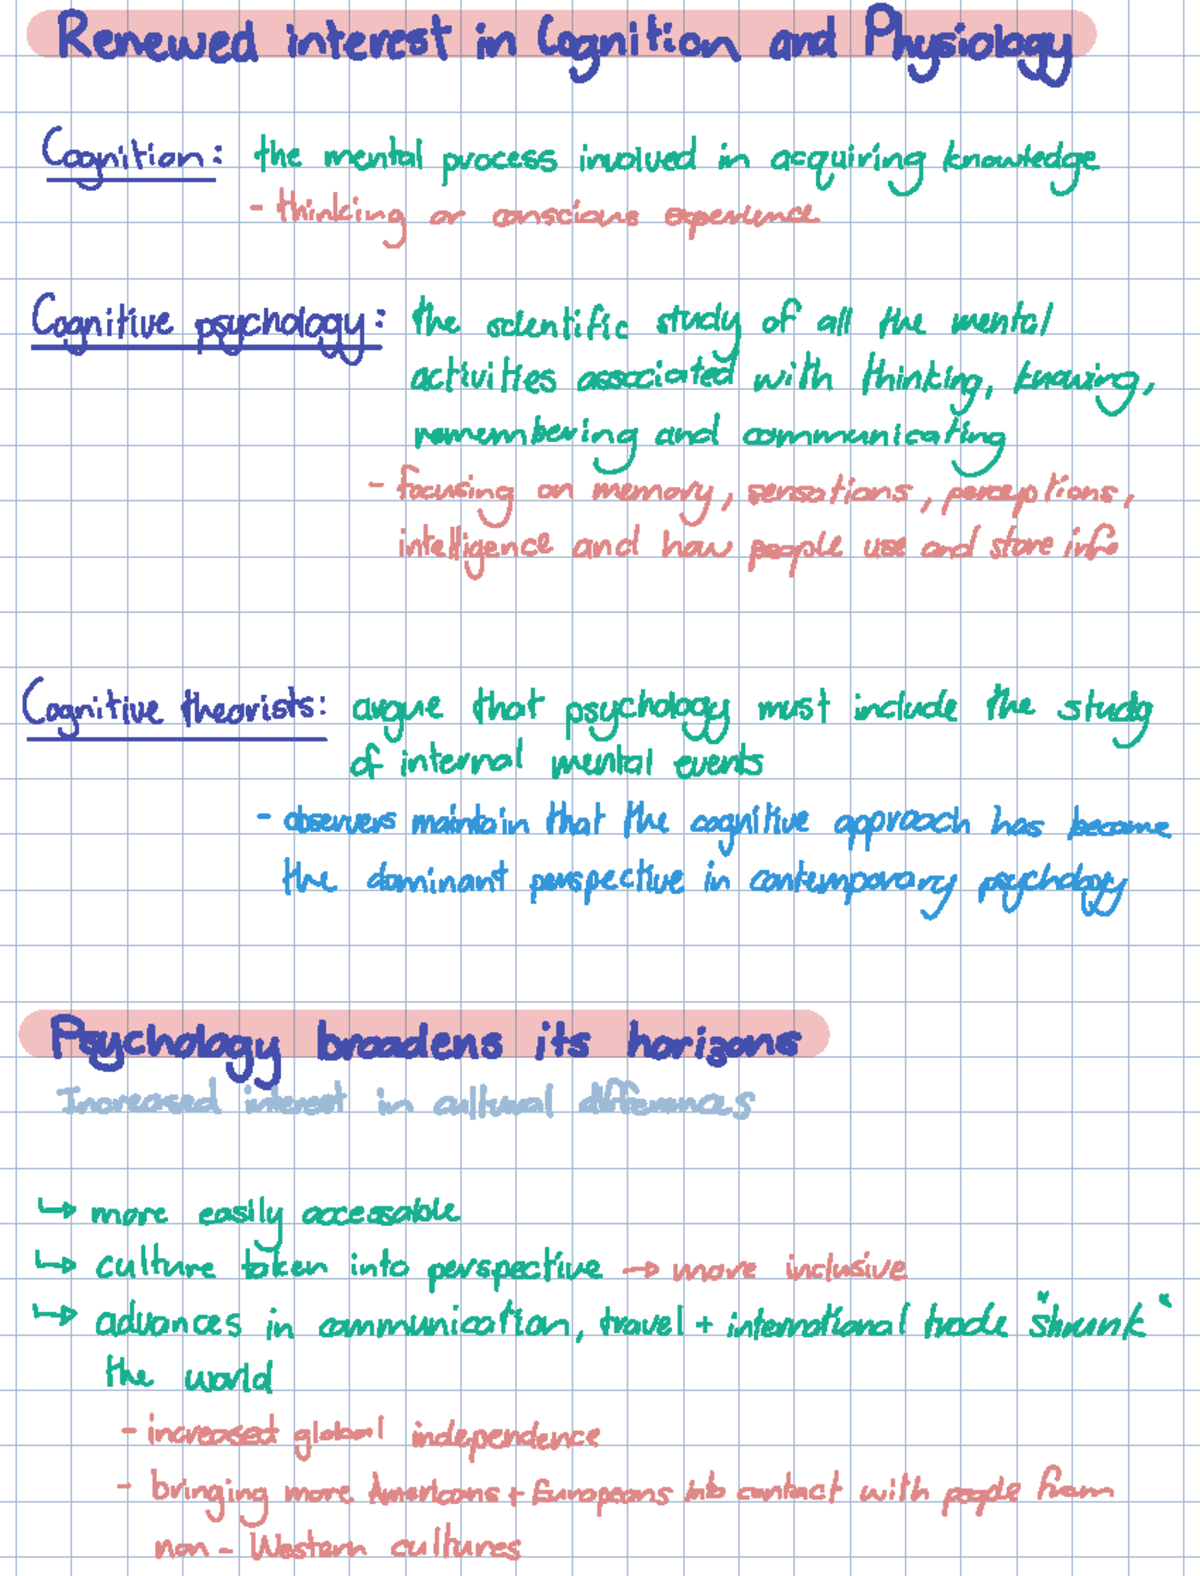 Renewed interest in Cognition and Physiology
Cognition: the mental process involved in acquiring knowledge
- thinking or conscious experience
Cognitive psychology: the scientific study of all the mental
activities associated with thinking, knowing,
remembering and communicating
- focusing on memory, sensations, perceptions,
intelligence and how people use and store info
Cognitive theorists: argue that psychology must include the study
of internal mental events
- observers maintain that the cognitive approach has become
the dominant perspective in contemporary psychology
Psychology broadens its horizons
Increased interest in cultural differences
↳ more easily accessable
↳ culture taken into perspective → more inclusive
↳ advances in communication, travel + international trade "shrunk"
the world
- increased global independence
- bringing more Americans + Europeans into contact with people from
non - Western cultures